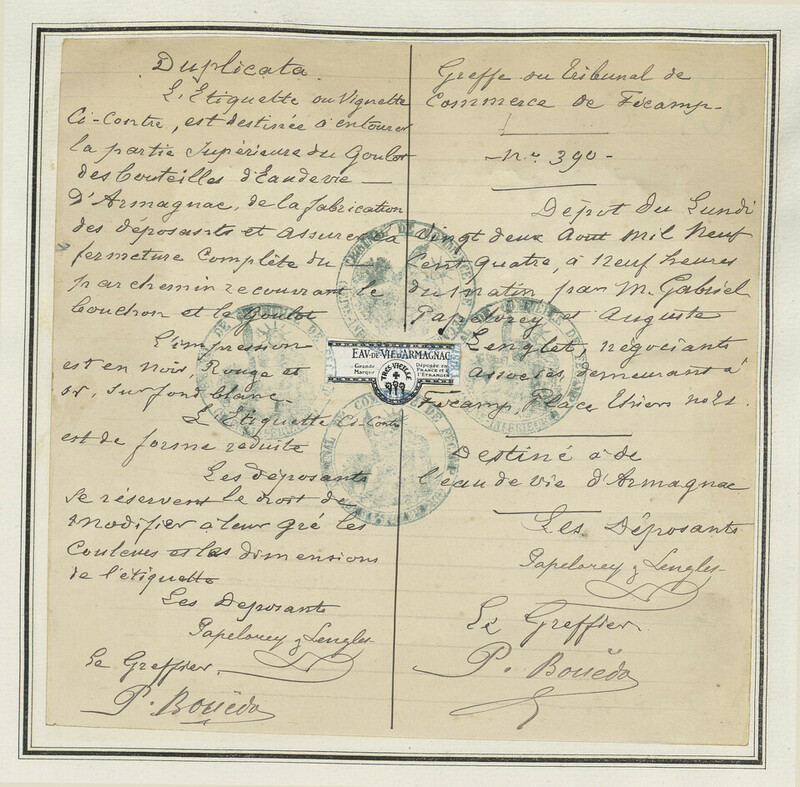 Duplicata.
L'Etiquette ou Vignette
Ci-Contre, est destinée à entourer
la partie Supérieure du Goulot
des bouteilles d'Eau de vie
D'Armagnac, de la fabrication
des déposants et assurer la
fermeture Complète du
parchemin recouvrant le
Goudron et le Goulot
L'impression
est en Noir, Rouge et
or, sur fond blanc.
L'Etiquette Ci-Contre
est de forme réduite
Les déposants
se réservent le droit de
modifier à leur gré les
Couleurs et les dimensions
de l'étiquette
Les Déposants
Papelorey & Lenglet
Le Greffier,
P. Bouëda
EAU-DE-VIE D'ARMAGNAC
Grande Marque
TRES VIEILLE
Déposée en FRANCE et à L'ETRANGER
Greffe du Tribunal de
Commerce de Fécamp-
-No. 390-
Dépôt du Lundi
vingt deux Août Mil Neuf
Cent quatre, à neuf heures
du matin par M. Gabriel
Papelorey et Auguste
Lenglet, négociants
associés, demeurant à
Fécamp, Place Thiers no 21.
Destiné à de
l'eau de vie d'Armagnac
Les Déposants
Papelorey & Lenglet
Le Greffier.
P. Bouëda